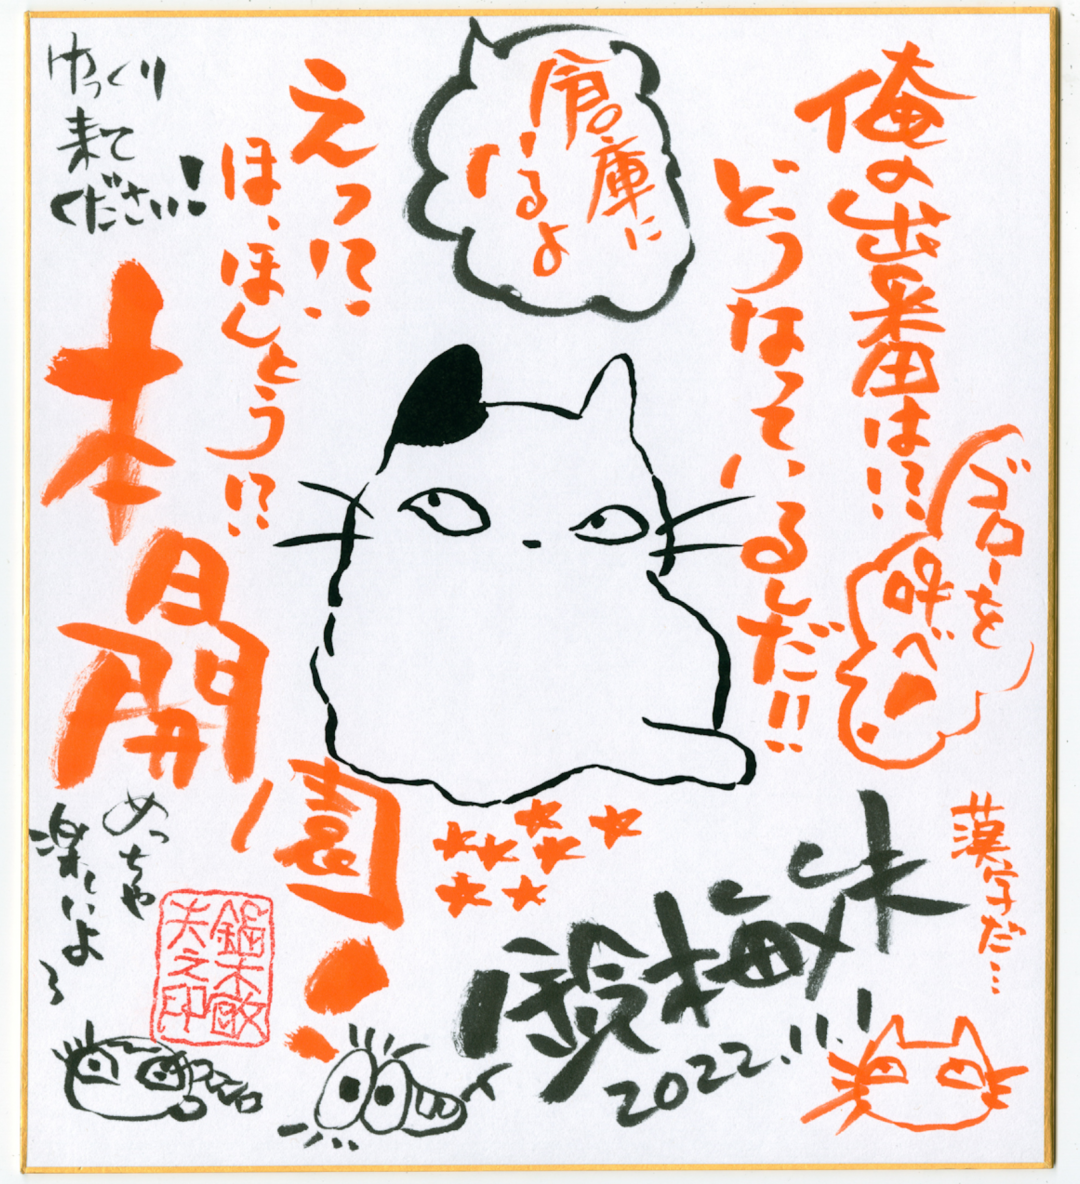 俺の出番は!?
どうなっているんだ!!
ゴローを
呼べ!
倉庫に
いるよ
えっ!?
ほ、ほんとう!?
ゆっくり
来て
ください!
本日開園!
めっちゃ
楽しいよ〜
漠字だ…
鈴木敏夫
2022.!!!
鈴木敏
夫之印